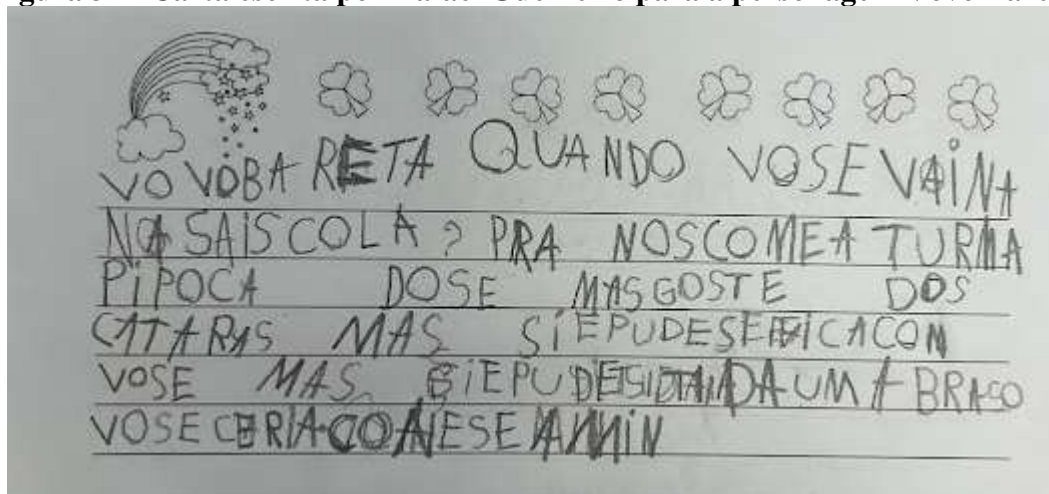 VO VOBA RETA QUANDO VOSE VAINA
NOSAISCOLA ? PRA NOSCOMEA TURMA
PIPOCA DOSE MASGOSTE DOS
CATARAS MAS SIEPUDESE FICACON
VOSE MAS SIEPUDESI DA UM ABRASO
VOSE CERIA CO NESE AMIN